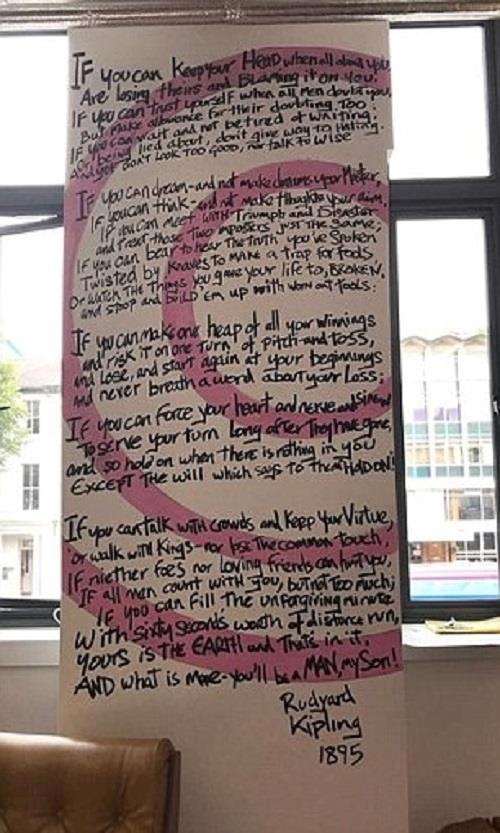 IF you can keep your HEAD when all about you
Are losing theirs and BLAMing it on You.
IF you can Trust yourself when all men doubt you,
But make allowance for their doubting Too:
IF you can wait and not be tired of waiting,
or being lied about, don't give way to Hating.
And yet DON'T LOOK TOO GOOD, nor talk TO WISE
IF you can dream-and not make dreams your Master,
IF you can think-and not make thoughts your aim.
IF you can meet with Triumph and Disaster
and treat those Two imposters JUST THE SAME;
IF you can bear to hear The TRUTH you've Spoken
Twisted by knaves to MAKE a trap for fools
Or watch THE Things you gave your life to, BROKEN.
and stoop and BUILD 'Em up with worn out Tools:
If you can make one heap of all your winnings
and risk it on one turn of Pitch-and-Toss,
and Lose, and start again at your beginnings
and never breath a word about your Loss;
If you can Force your heart and nerve and sinew
To serve your turn Long after They have gone,
and so hold on when there is nothing in you
EXCEPT The will which says to them HOLD ON!
IF you can talk with crowds and Keep Your Virtue,
or walk with Kings-nor lose The common touch,
IF niether foes nor Loving friends can hurt you,
IF all men count with you, but not Too much;
IF you can Fill The unforgiving minute
With sixty seconds worth of distance run,
YOURS is THE EARTH and Thats in it,
AND what is More-you'll be a MAN, my Son!
Rudyard
Kipling
1895